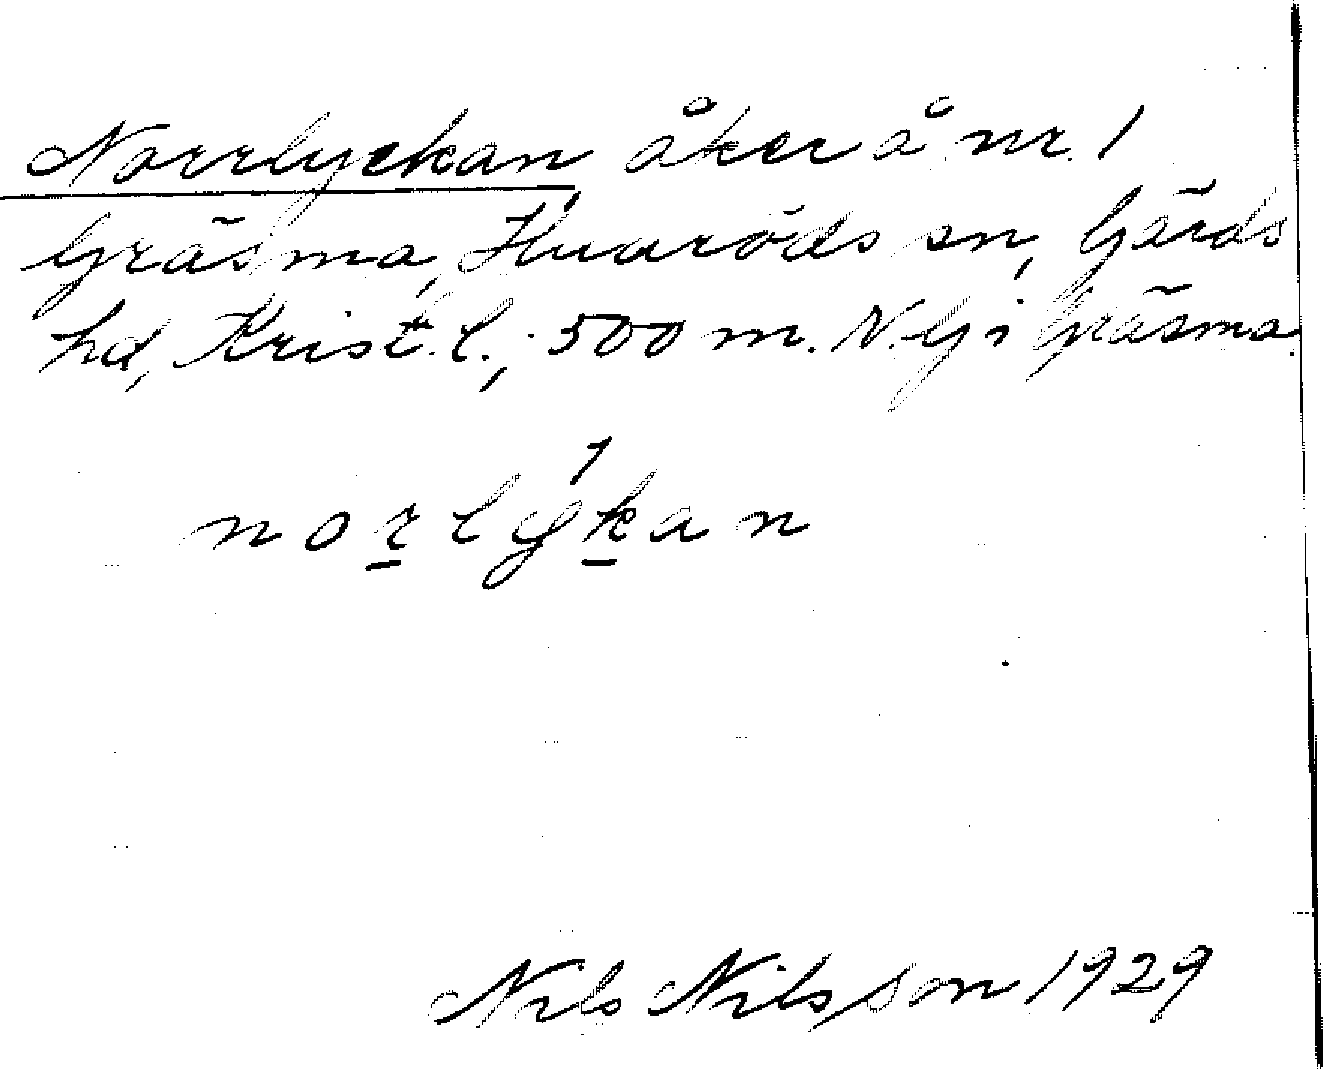 Norrlyckan åker å nr. 1
Gräsma, Huaröds sn, Gärds
hd, Krist. l.; 500 m. N. g i Gräsma.
norlykan
Nils Nilsson 1929